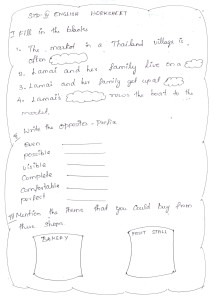 STD ⑤ ENGLISH WORKSHEET
I Fill in the blanks
1. The market in a Thailand village is
often
2. Lamai and her family live on a
3. Lamai and her family get up at
4. Lamai's rows the boat to the
market.
Write the opposites - Prefix
Own
possible
visible
Complete
Comfortable
perfect
III Mention the items that you could buy from
these shops.
BAKERY
FRUIT STALL